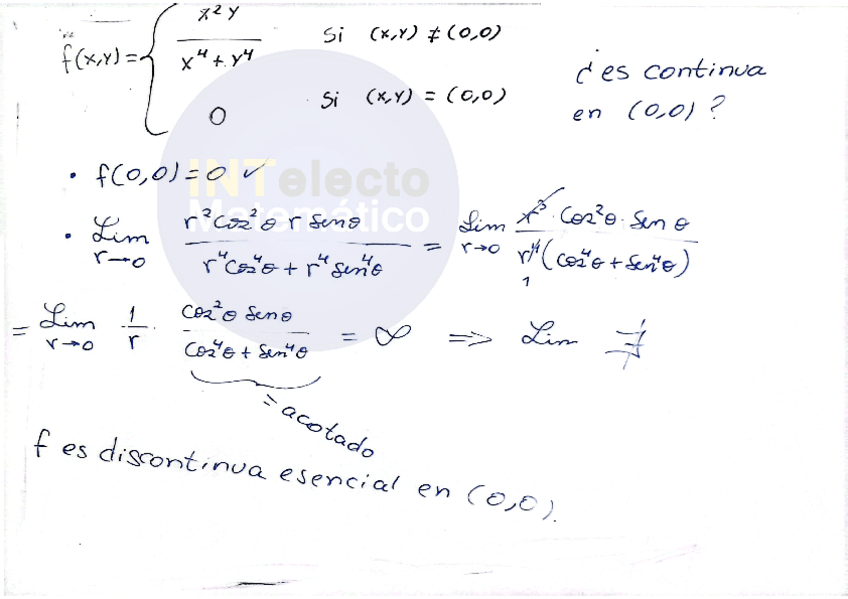 f(x,y) = { x²y / (x⁴ + y⁴) si (x,y) ≠ (0,0)
0 si (x,y) = (0,0)
¿es continua
en (0,0)?
INTelecto
Matemático
• f(0,0) = 0 ✓
• Lim r→0 (r²cos²θ r senθ) / (r⁴cos⁴θ + r⁴sen⁴θ) = Lim r→0 (r³ · cos²θ · sen θ) / (r⁴(cos⁴θ + sen⁴θ)) 1
= Lim r→0 1/r · (cos²θ senθ) / (cos⁴θ + sen⁴θ) = ∞ ⇒ Lim ∄
= acotado
f es discontinua esencial en (0,0).